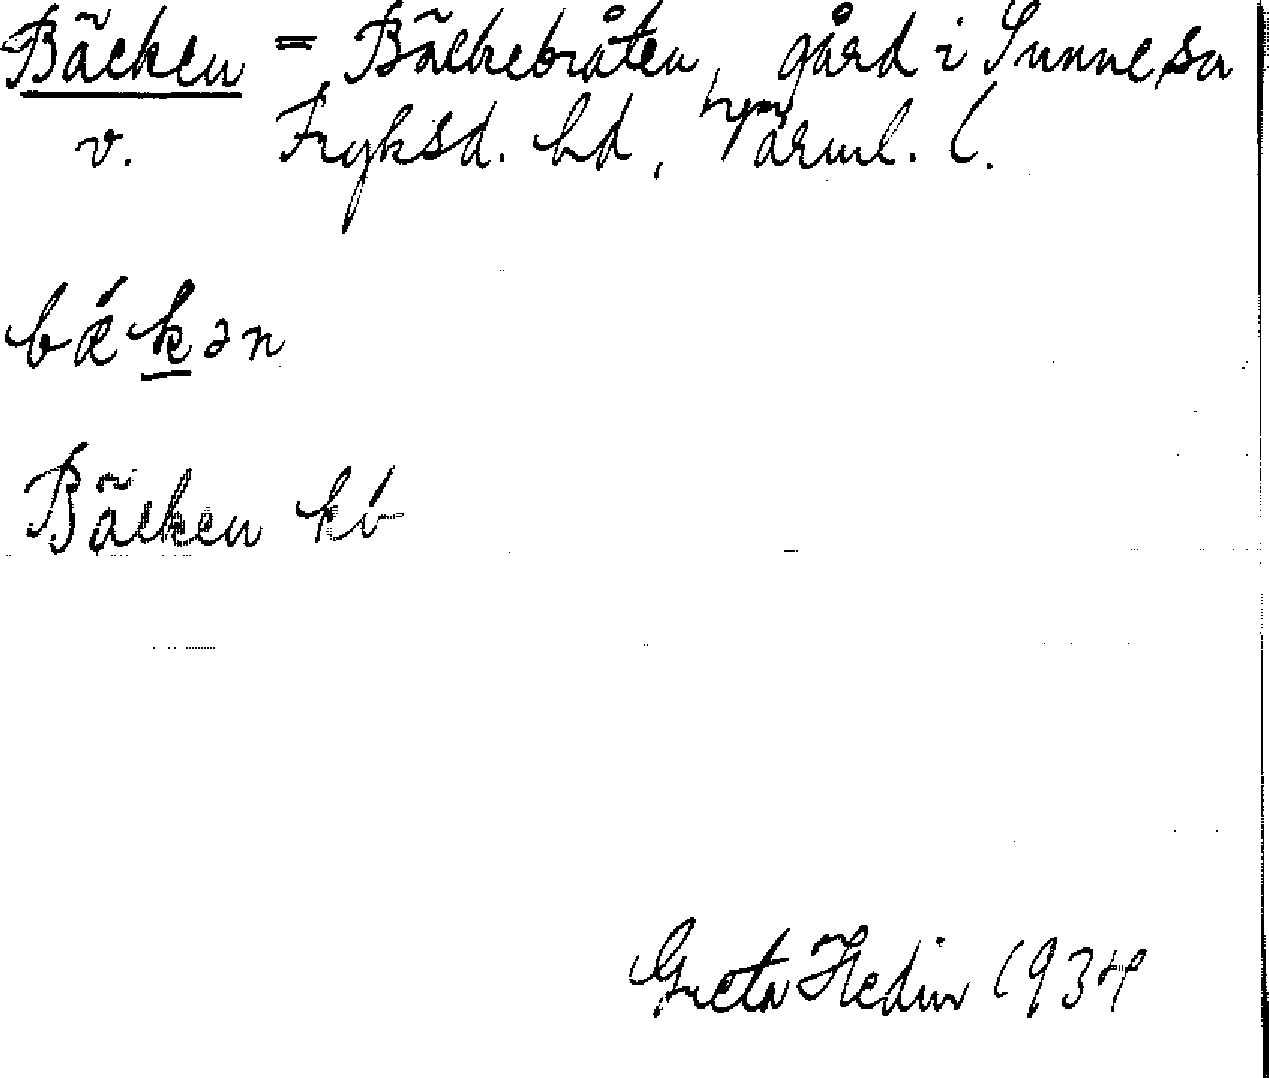 Bäcken = Bäckebråten, gård i Sunne sn
v. Fryksd. hd, Värml. l.
bǽkən
Bäcken kb
Greta Hedin 1934